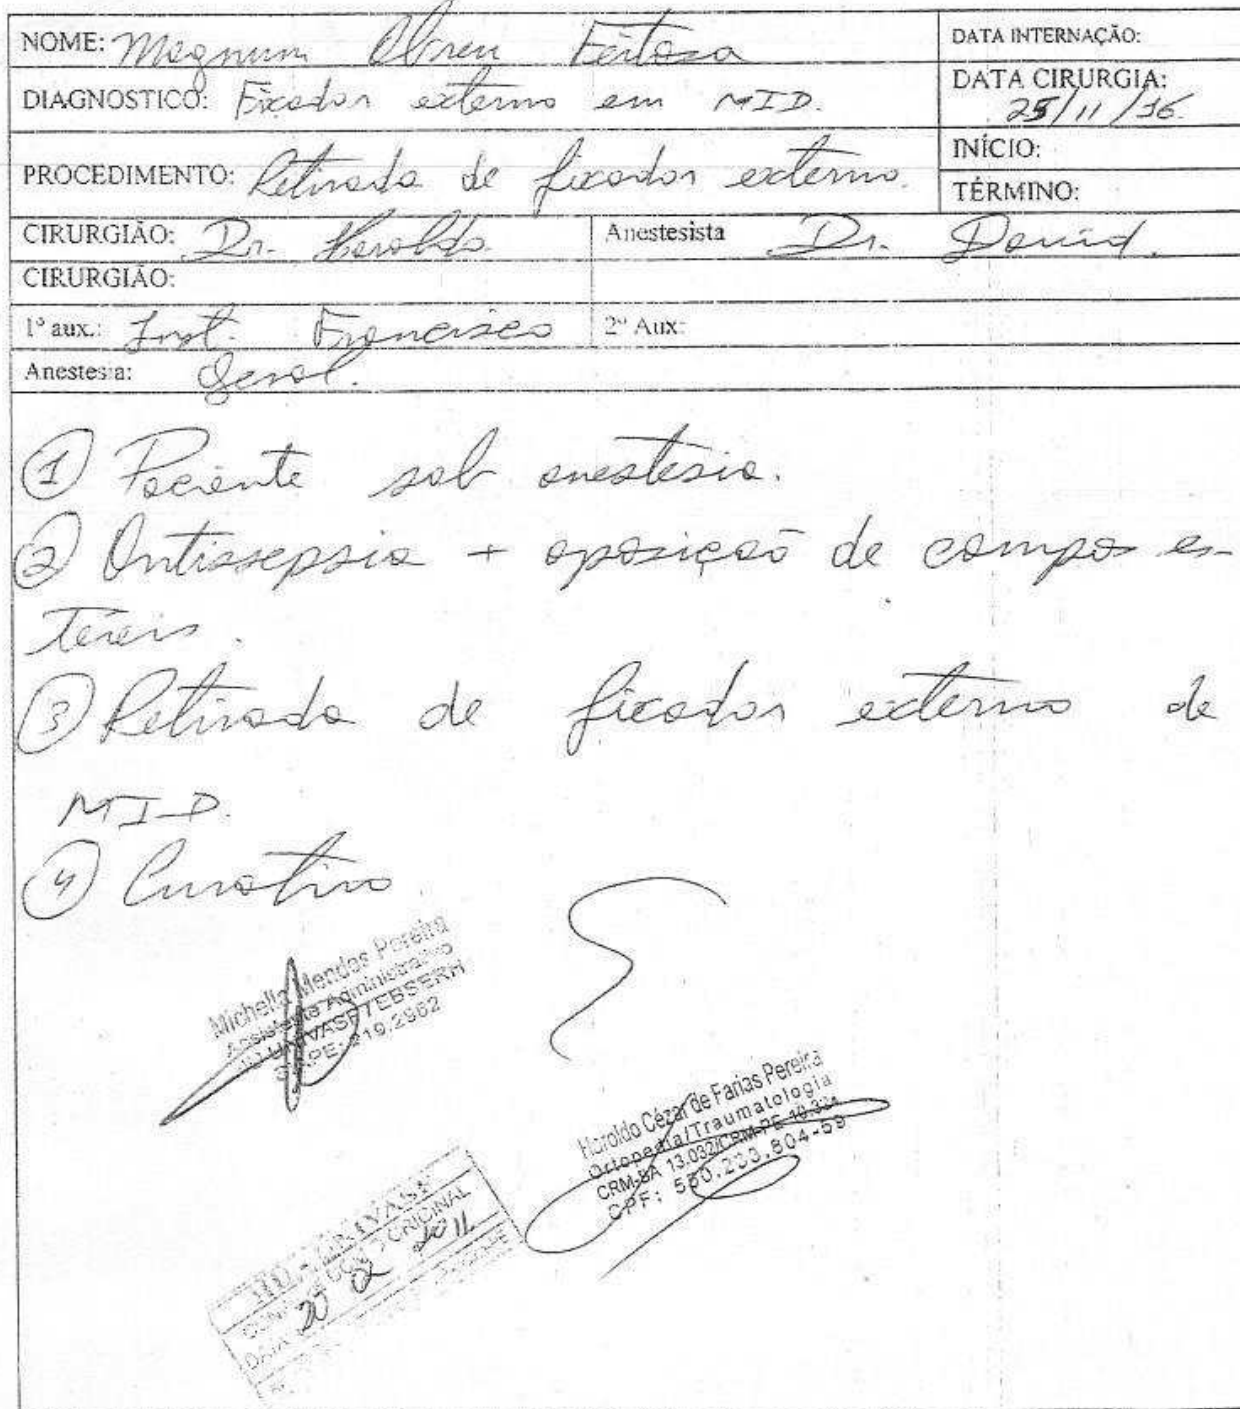 NOME: Magnum Abreu Feitoza
DATA INTERNAÇÃO:
DIAGNOSTICO: Fixador externo em MID.
DATA CIRURGIA: 25/11/16
PROCEDIMENTO: Retirada de fixador externo.
INÍCIO:
TÉRMINO:
CIRURGIÃO: Dr. Haroldo. Anestesista Dr. David.
CIRURGIÃO:
1º aux.: Inst. Francisco 2º Aux:
Anestesia: Geral.
1 Paciente sob anestesia.
2 Antissepsia + aposição de campos es-
téreis.
3 Retirada de fixador externo de
MID.
4 Curativo
Michelle Mendes Pereira
Assistente Administrativo
UNIVASF/EBSERH
Haroldo Cézar de Farias Pereira
Ortopedia/Traumatologia
CRM-BA 13.032/CRM-PE
CPF: 550.233.804-59
UNIVASF
ORIGINAL
DATA 20 02